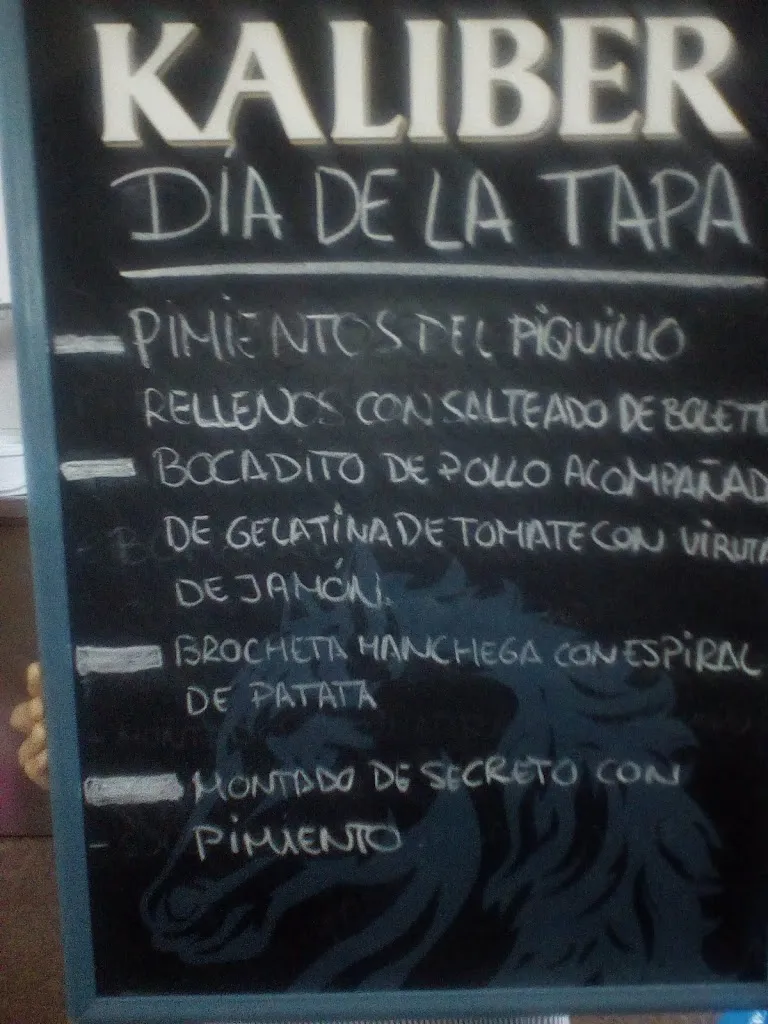 KALIBER
DÍA DE LA TAPA
PIMIENTOS DEL PIQUILLO
RELLENOS CON SALTEADO DE BOLETO
BOCADITO DE POLLO ACOMPAÑAD
DE GELATINA DE TOMATE CON VIRUTA
DE JAMÓN.
BROCHETA MANCHEGA CON ESPIRAL
DE PATATA
MONTADO DE SECRETO CON
PIMIENTO